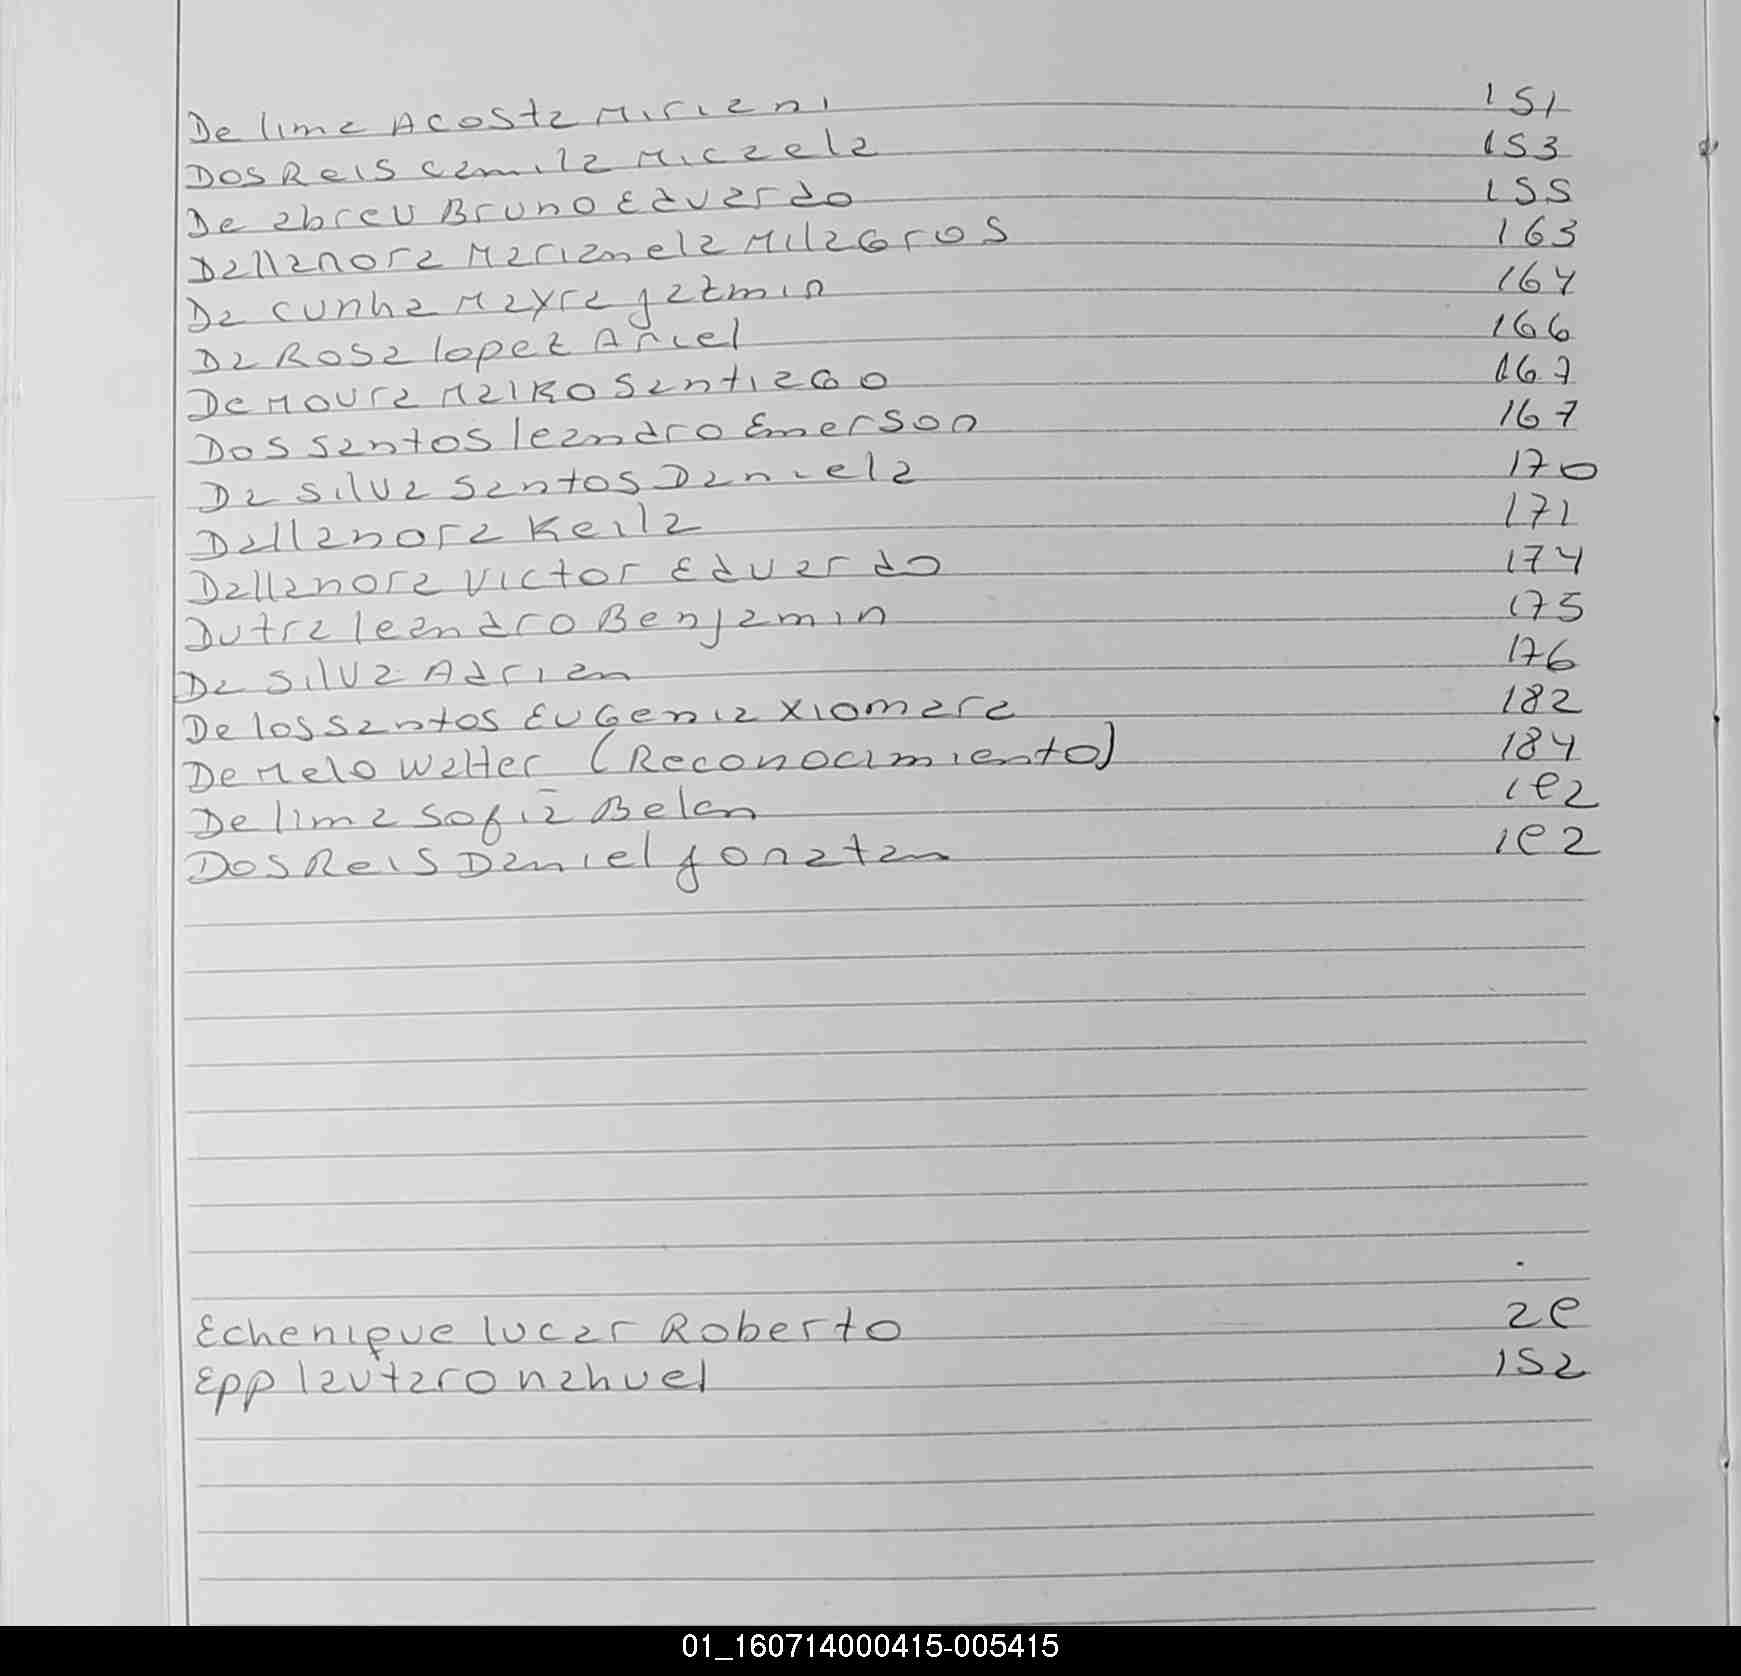 De lima Acosta Miriani 151
Dos Reis camila Micaela 153
De abreu Bruno Eduardo 155
Dallanora Marianela Milagros 163
Da cunha Mayra jazmin 164
Da Rosa lopez Ariel 166
De Moura Maiko Santiago 167
Dos santos leandro Emerson 167
Da silva santos Daniela 170
Dallanora Keila 171
Dallanora victor Eduardo 174
Dutra leandro Benjamin 175
Da silva Adrian 176
De los santos Eugenia xiomara 182
De Melo walter (Reconocimiento) 184
De lima sofia Belen 192
Dos Reis Daniel jonatan 192
Echenique lucar Roberto 29
Epp lautaro nahuel 152
01_160714000415-005415